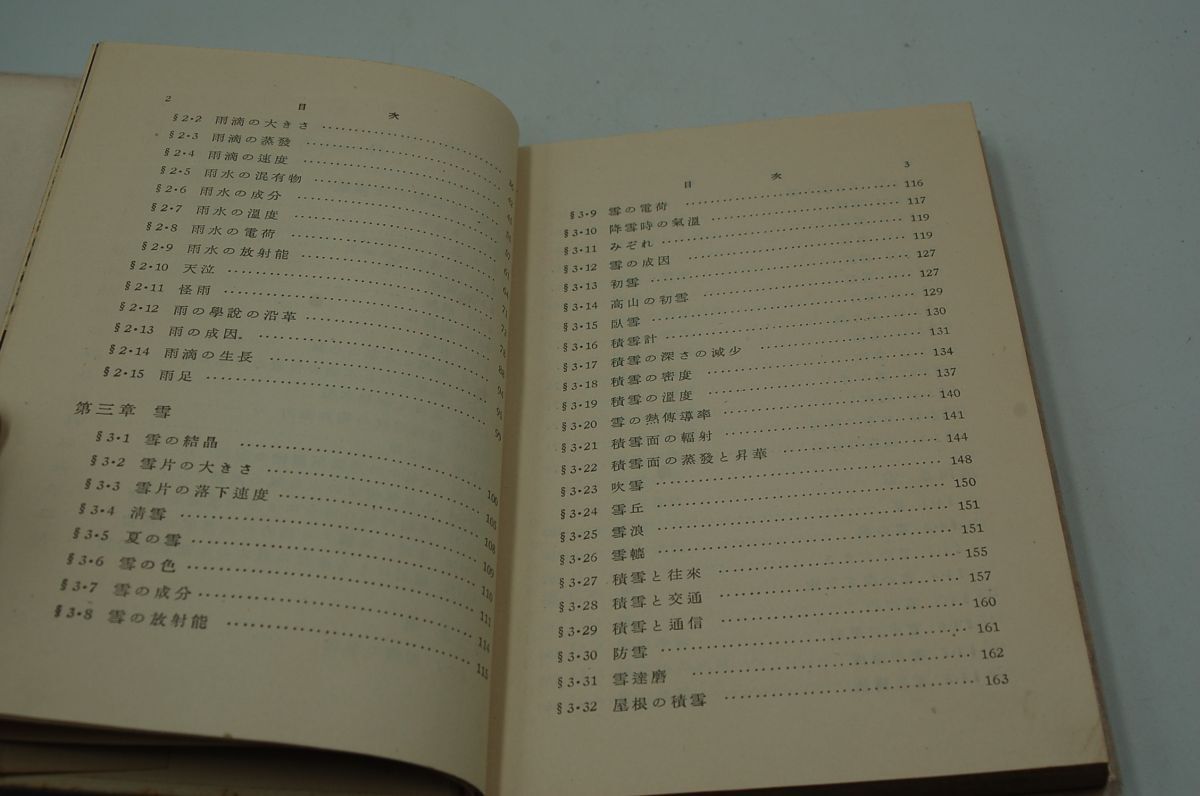 2 目次
§2·2 雨滴の大きさ
§2·3 雨滴の蒸發
§2·4 雨滴の速度
§2·5 雨水の混有物
§2·6 雨水の成分
§2·7 雨水の溫度
§2·8 雨水の電荷
§2·9 雨水の放射能
§2·10 天泣
§2·11 怪雨
§2·12 雨の學說の沿革
§2·13 雨の成因
§2·14 雨滴の生長
§2·15 雨足
第三章 雪
§3·1 雪の結晶 100
§3·2 雪片の大きさ 105
§3·3 雪片の落下速度 108
§3·4 清雪 109
§3·5 夏の雪 110
§3·6 雪の色 111
§3·7 雪の成分 114
§3·8 雪の放射能 115
目次 3
§3·9 雪の電荷 116
§3·10 降雪時の氣溫 117
§3·11 みぞれ 119
§3·12 雪の成因 119
§3·13 初雪 127
§3·14 高山の初雪 127
§3·15 臥雪 129
§3·16 積雪計 130
§3·17 積雪の深さの減少 131
§3·18 積雪の密度 134
§3·19 積雪の溫度 137
§3·20 雪の熱傳導率 140
§3·21 積雪面の輻射 141
§3·22 積雪面の蒸發と昇華 144
§3·23 吹雪 148
§3·24 雪丘 150
§3·25 雪浪 151
§3·26 雪轆 151
§3·27 積雪と往來 155
§3·28 積雪と交通 157
§3·29 積雪と通信 160
§3·30 防雪 161
§3·31 雪達磨 162
§3·32 屋根の積雪 163